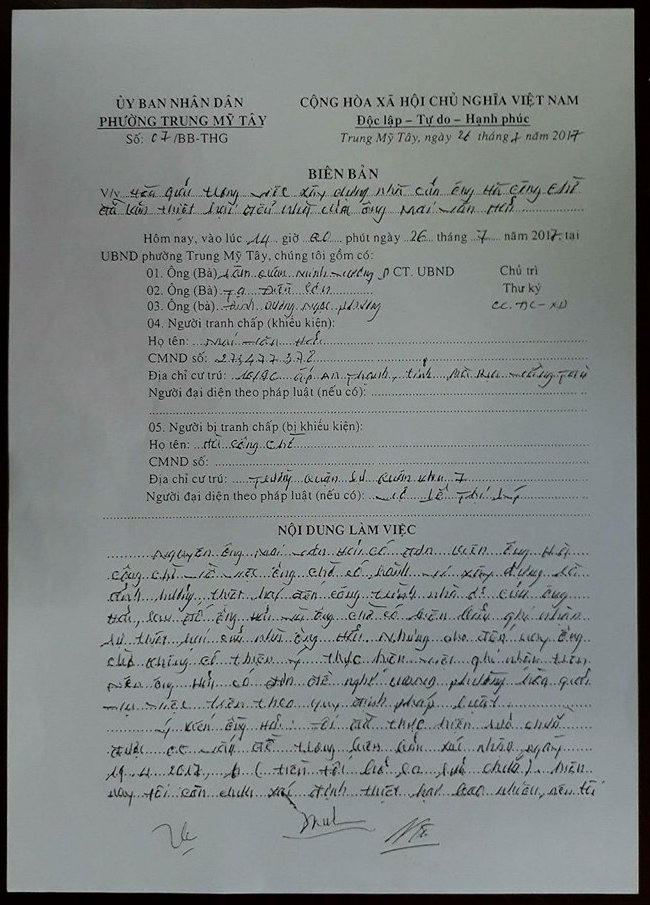 ỦY BAN NHÂN DÂN
PHƯỜNG TRUNG MỸ TÂY
Số: 07/BB-THG
CỘNG HÒA XÃ HỘI CHỦ NGHĨA VIỆT NAM
Độc lập – Tự do – Hạnh phúc
Trung Mỹ Tây, ngày 26 tháng 7 năm 2017
BIÊN BẢN
V/v Hòa giải trong việc xây dựng nhà của ông Hà Công Chế
đã làm thiệt hại đến nhà của ông Mai Văn Hải
Hôm nay, vào lúc 14 giờ 00 phút ngày 26 tháng 7 năm 2017, tại
UBND phường Trung Mỹ Tây, chúng tôi gồm có:
01. Ông (Bà) CT. UBND Chủ trì
02. Ông (Bà) Thư ký
03. Ông (bà) CC. ĐC-XD
04. Người tranh chấp (khiếu kiện):
Họ tên: Mai Văn Hải
CMND số: 273477378
Địa chỉ cư trú: ấp An Thạnh, tỉnh Bà Rịa - Vũng Tàu
Người đại diện theo pháp luật (nếu có):
05. Người bị tranh chấp (bị khiếu kiện):
Họ tên: Hà Công Chế
CMND số:
Địa chỉ cư trú: Trường Quân sự Quân khu 7
Người đại diện theo pháp luật (nếu có): Lê Thị
NỘI DUNG LÀM VIỆC
Nguyên ông Mai Văn Hải có đơn kiện ông Hà
Công Chế về việc ông Chế có hành vi xây dựng đã
ảnh hưởng, thiệt hại đến công trình nhà ở của ông
Hải, sau đó ông Hải và ông Chế có biên bản ghi nhận
sự thiệt hại của nhà ông Hải. Nhưng cho đến nay ông
Chế không có thiện ý thực hiện việc ghi nhận trên
nên ông Hải có đơn đề nghị phường hòa giải
vụ việc trên theo quy định pháp luật.
Ý kiến ông Hải: Tôi đã thực hiện sửa chữa
đã trong biên bản xác nhận ngày
19.4.2017, (tiền tôi bỏ ra sửa chữa). Hiện
nay tôi cần xác định thiệt hại bao nhiêu, nên tôi